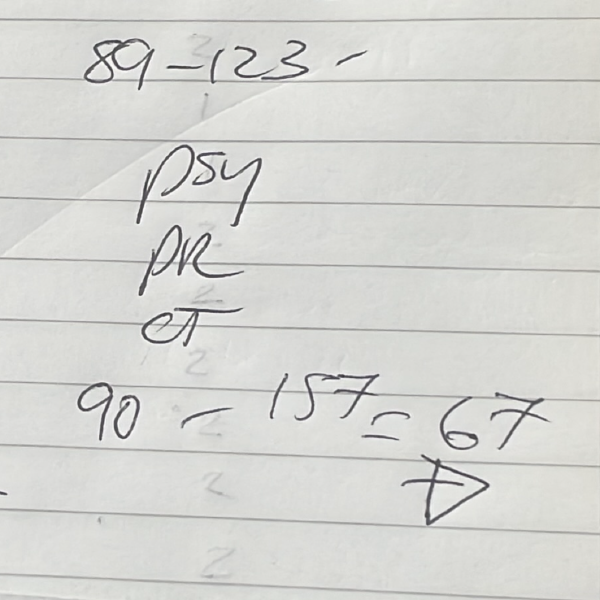 89-123 -
psy
PR
CT
90 - 157 = 67